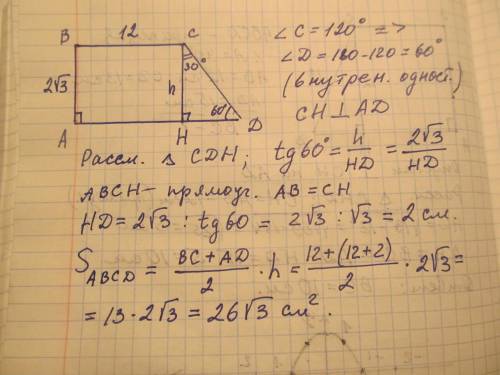 B 12 C
∠C = 120° =>
∠D = 180 - 120 = 60°
(внутрен. одност.)
CH ⊥ AD
30°
2√3 h
60°
A H D
Рассм. ∆ CDH; tg60° = h/HD = 2√3/HD
ABCH - прямоуг. AB = CH
HD = 2√3 : tg60 = 2√3 : √3 = 2 см.
S ABCD = (BC + AD)/2 · h = (12 + (12 + 2))/2 · 2√3 =
= 13 · 2√3 = 26√3 см².